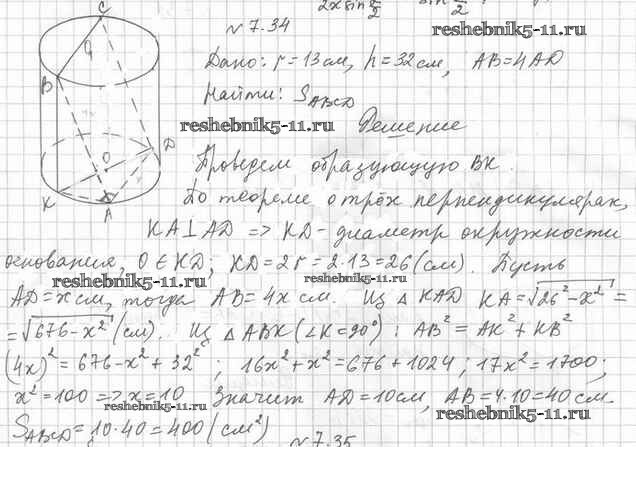 2x sin α/2
reshebnik5-11.ru
№7.34
C
O₁
B
O
D
K
A
Дано: r=13см, h=32см, AB=4AD
Найти: S_ABCD
reshebnik5-11.ru
Решение
Проведем образующую BK.
reshebnik5-11.ru
По теореме о трёх перпендикулярах,
KA⊥AD => KD-диаметр окружности
основания, O∈KD; KD=2r=2·13=26(см). Пусть
reshebnik5-11.ru reshebnik5-11.ru
AD=x см, тогда AB=4x см. Из △KAD KA=√26²-x² =
=√676-x² (см). Из △ABK (∠K=90°): AB²=AK²+KB²
(4x)²=676-x²+32²; 16x²+x²=676+1024; 17x²=1700;
x²=100 => x=10 Значит AD=10см, AB=4·10=40 см.
reshebnik5-11.ru reshebnik5-11.ru
S_ABCD=10·40=400(см²)
№7.35